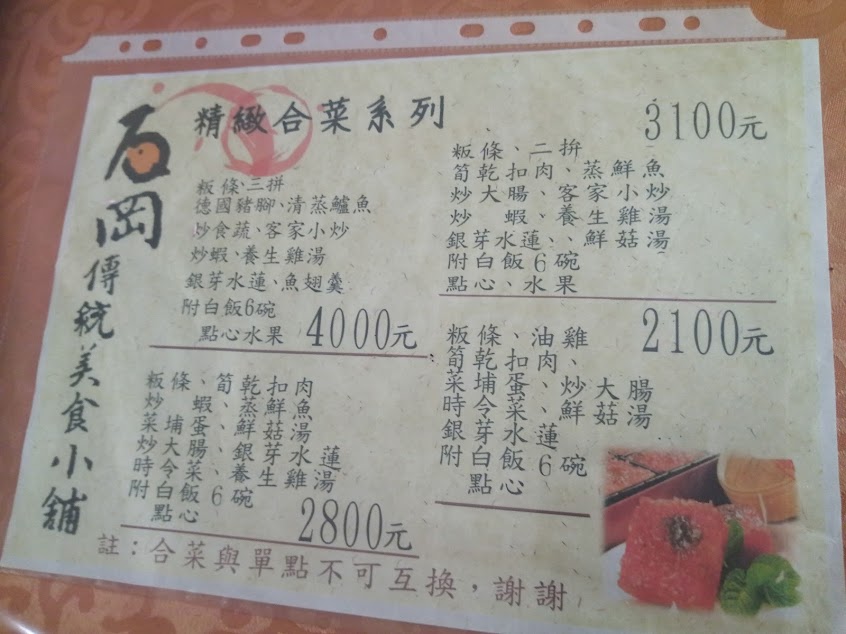 石岡傳統美食小舖
精緻合菜系列
粄條、三拼
德國豬腳、清蒸鱸魚
炒食蔬、客家小炒
炒蝦、養生雞湯
銀芽水蓮、魚翅羹
附白飯6碗
點心水果
4000元
3100元
粄條、二拚
筍乾扣肉、蒸鮮魚
炒大腸、客家小炒
炒 蝦、養生雞湯
銀芽水蓮、、鮮菇湯
附白飯6碗
點心、水果
粄條、筍乾扣肉
炒 蝦、蒸鮮魚
菜埔蛋、鮮菇湯
炒大腸、銀芽水蓮
時令菜、養生雞湯
附白飯6碗
點心
2800元
2100元
粄條、油雞
筍乾扣肉、
菜埔蛋、炒大腸
時令菜、鮮菇湯
銀芽水蓮
附白飯6碗
點心
註：合菜與單點不可互換，謝謝